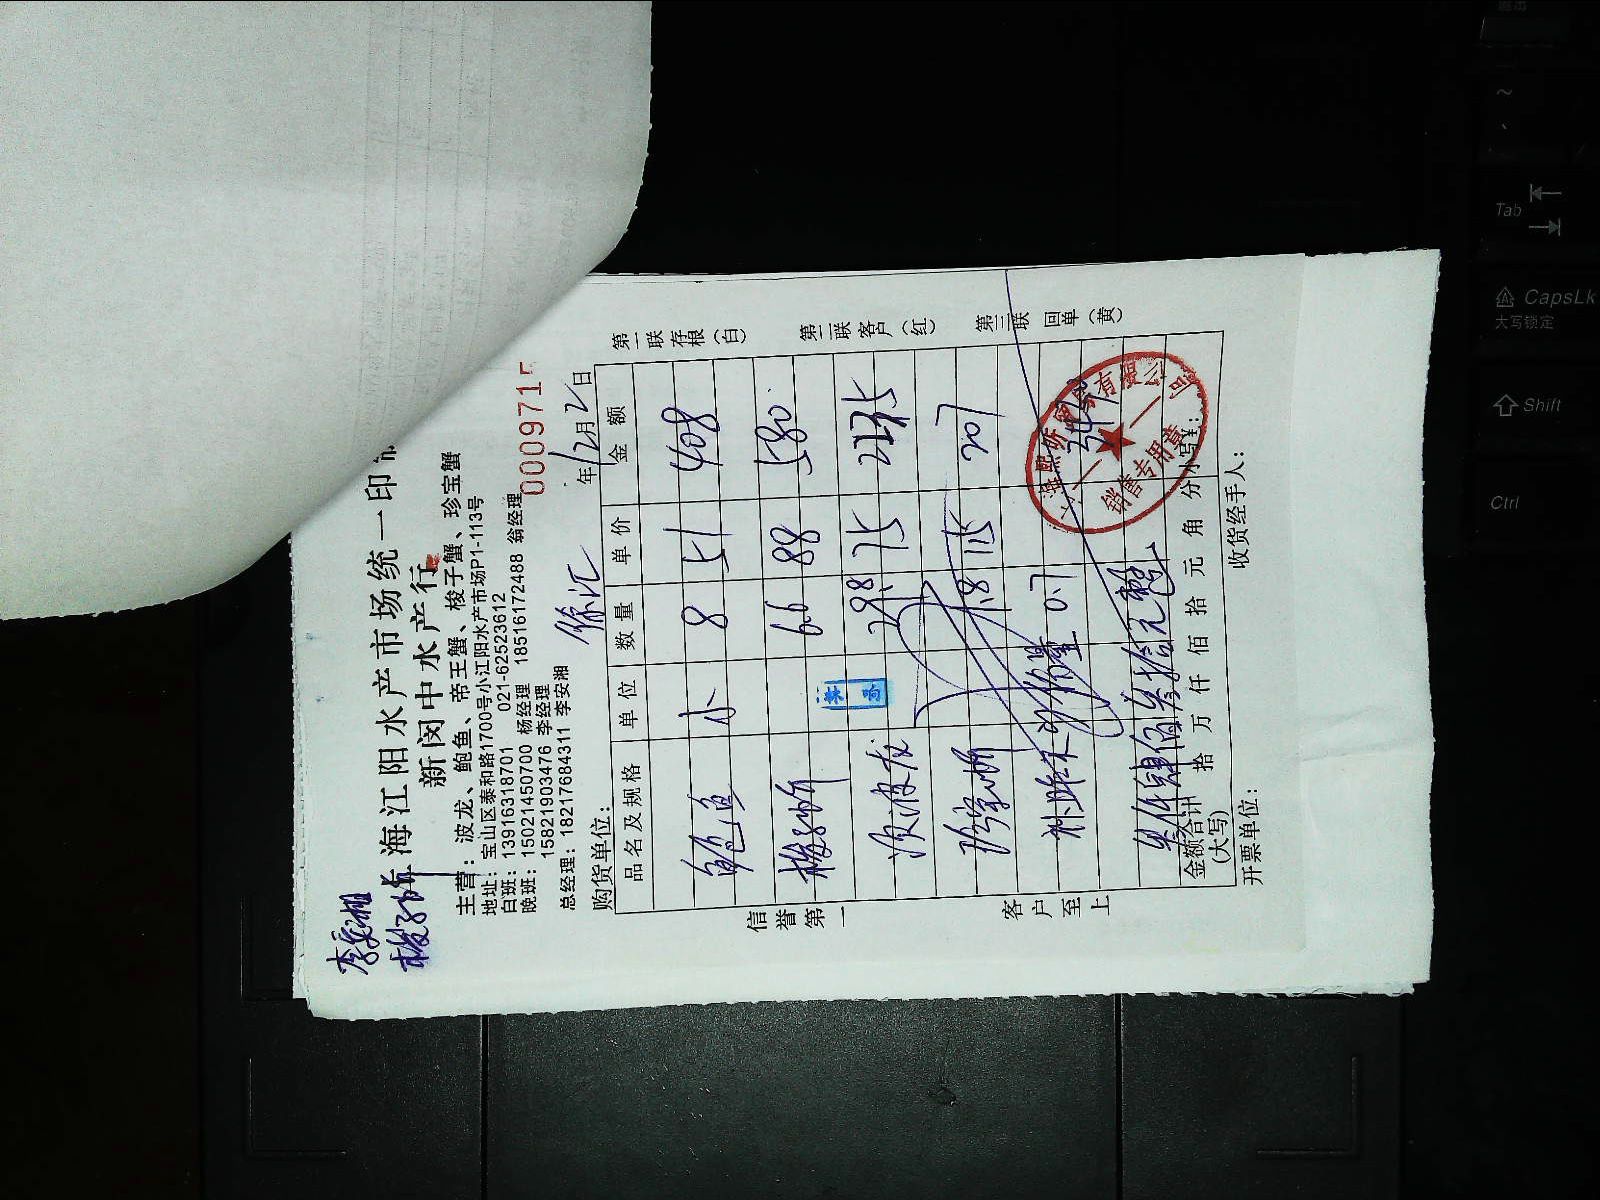 李安湘
梭子蟹
上海江阳水产市场统一印制
新闵中水产行
主营：波龙、鲍鱼、帝王蟹、梭子蟹、珍宝蟹
地址：宝山区泰和路1700号小江阳水产市场P1-113号
白班：13916318701 021-62523612
晚班：15021450700 杨经理 18516172488 翁经理
15821903476 李经理
总经理：18217684311 李安湘
000971
购货单位： 徐汇 年12月2日
品名及规格 单位 数量 单价 金额
鲍鱼 小 8 51 408
梭子蟹 6.6 88 580
波龙 29.8 75 2235
珍宝蟹 1.8 115 207
0.7
金额合计(大写) 叁仟肆佰叁拾元整
拾 万 仟 佰 拾 元 角 分 小写¥：
开票单位： 收货经手人：
信誉第一
客户至上
第一联存根（白）
第二联客户（红）
第三联回单（黄）
销售专用章
Tab
CapsLk
大写锁定
Shift
Ctrl